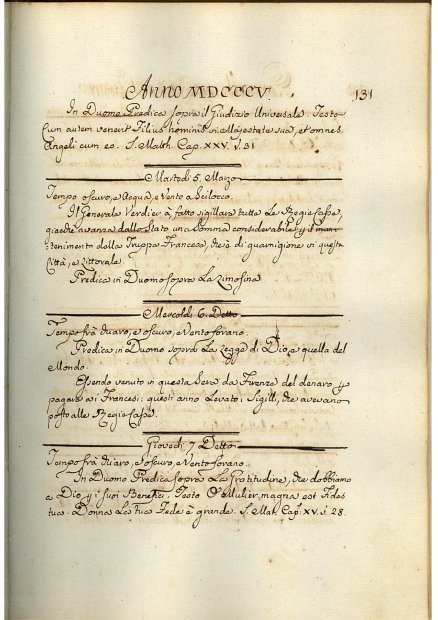 Anno MDCCCV. 131
In Duomo Predica sopra il Giudizio Universale. Testo
Cum autem venerit Filius hominis in Majestate sua, et omnes
Angeli cum eo. S. Matth. Cap. XXV. v. 31
Martedì 5. Marzo
Tempo oscuro, e Acqua, e Vento a Scilocco.
Il Generale Verdier à fatto sigillare tutte Le Regie Casse,
giacchè avanza dallo Stato una Somma considerabile p il man-
tenimento della Truppa Francese, che è di guarnigione in questa
Città, e Littorale.
Predica in Duomo sopra La Limosina
Mercoldì 6. Detto
Tempo frà chiaro, e oscuro, e Vento forano.
Predica in Duomo sopra La Legge di Dio, e quella del
Mondo.
Essendo venuto in questa Sera da Firenze del denaro p
pagare a i Francesi: questi anno Levato i Sigilli, che avevano
posto alle Regie Casse.
Giovedì 7 Detto
Tempo frà chiaro, e oscuro, e Vento forano.
In Duomo Predica sopra La Gratitudine, che dobbiamo
a Dio p i suoi Benefici. Testo O Mulier, magna est Fides
tua. Donna La tua Fede è grande. S. Mat. Cap. XV. v. 28.